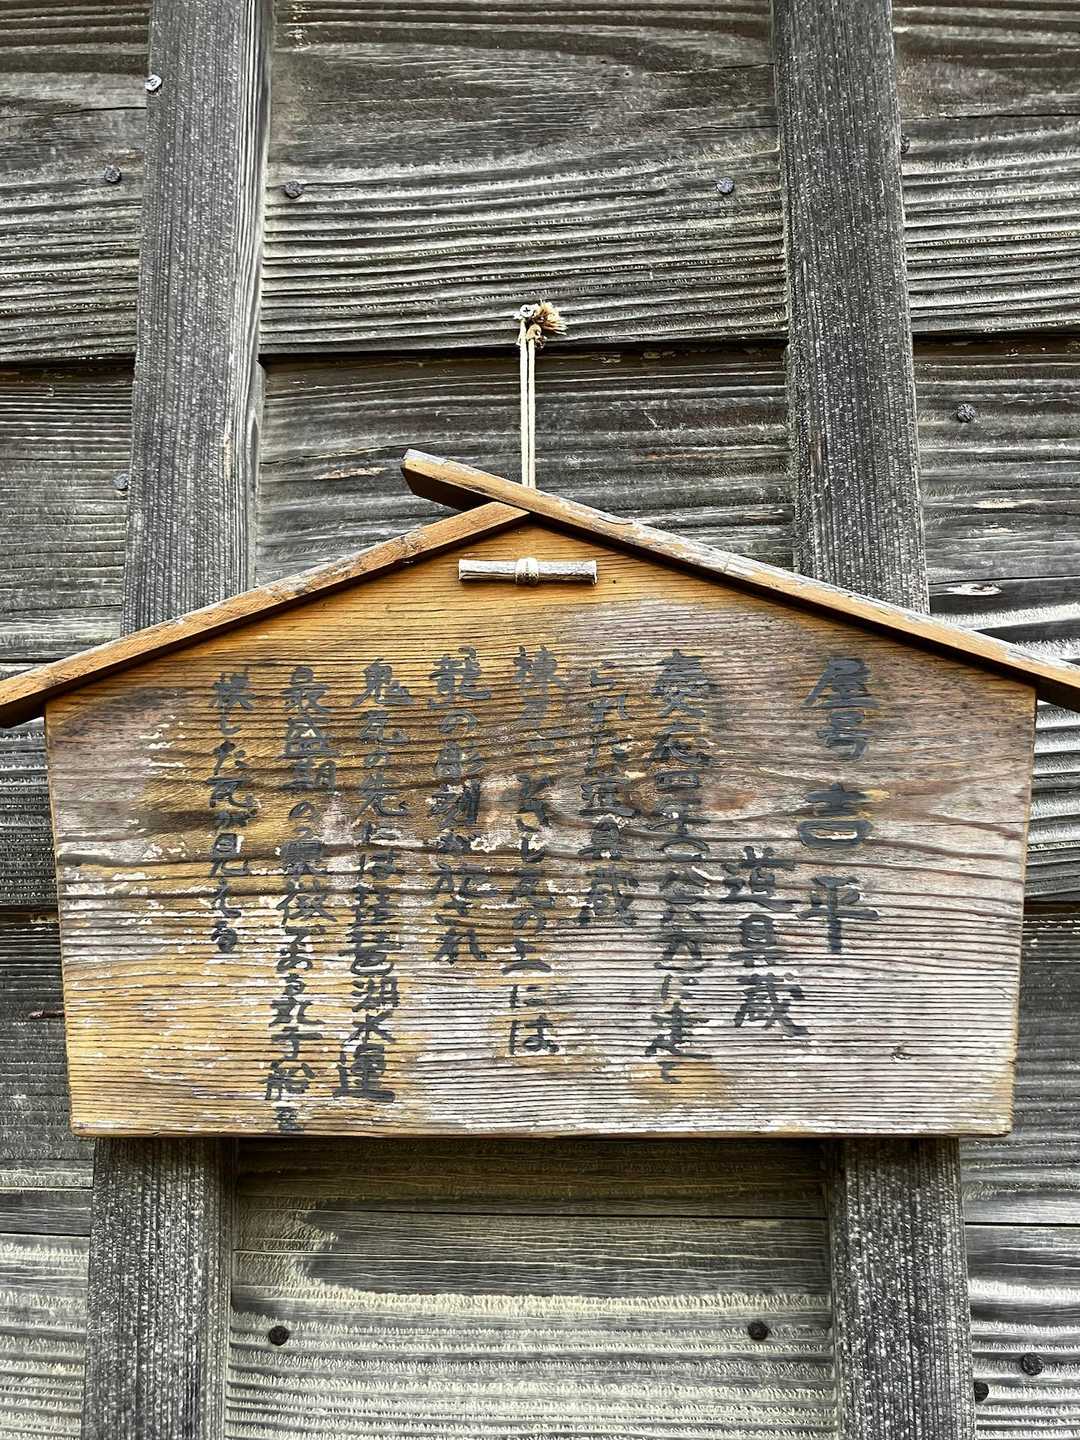 屋号 吉平
道具蔵
慶応四年(一八六八)に建て
られた道具蔵
棟 し瓦の上には
龍の彫刻が施され
鬼瓦の先には琵琶湖水運
最盛期の象徴である丸子船を
模した瓦が見える